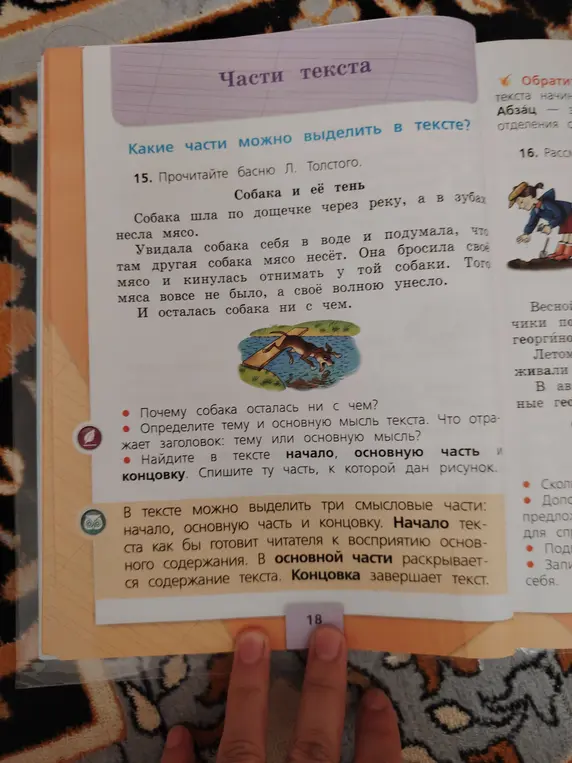 Части текста
Какие части можно выделить в тексте?
15. Прочитайте басню Л. Толстого.
Собака и её тень
Собака шла по дощечке через реку, а в зубах
несла мясо.
Увидала собака себя в воде и подумала, что
там другая собака мясо несёт. Она бросила своё
мясо и кинулась отнимать у той собаки. Того
мяса вовсе не было, а своё волною унесло.
И осталась собака ни с чем.
• Почему собака осталась ни с чем?
• Определите тему и основную мысль текста. Что отра-
жает заголовок: тему или основную мысль?
• Найдите в тексте начало, основную часть и
концовку. Спишите ту часть, к которой дан рисунок.
В тексте можно выделить три смысловые части:
начало, основную часть и концовку. Начало тек-
ста как бы готовит читателя к восприятию основ-
ного содержания. В основной части раскрывает-
ся содержание текста. Концовка завершает текст.
18
текста
Абзац —
отделения
16.
Весной
Летом
В
•
•
для
•
•
себя.